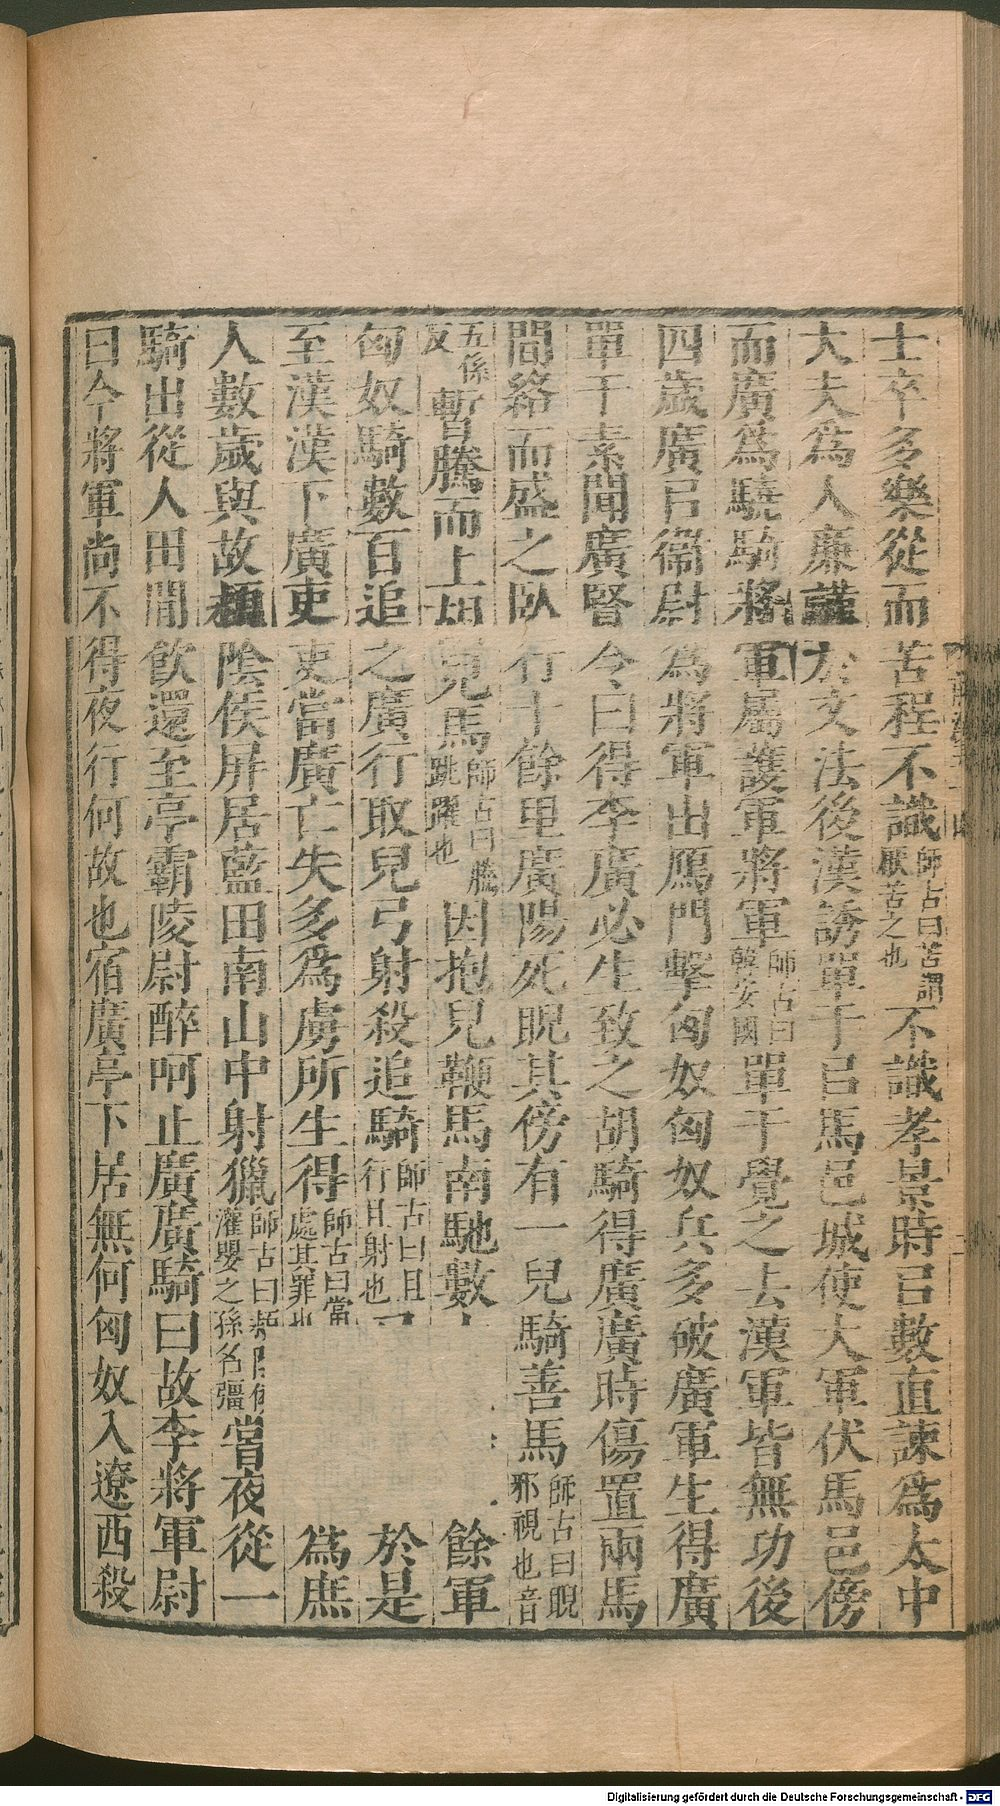 士卒多樂從而苦程不識師古曰苦謂厭苦之也不識孝景時㠯數直諫爲太中
大夫爲人廉謹於文法後漢誘單于㠯馬邑城使大軍伏馬邑傍
而廣爲驍騎將軍屬護軍將軍師古曰韓安國單于覺之去漢軍皆無功後
四歲廣㠯衞尉爲將軍出鴈門擊匈奴匈奴兵多破廣軍生得廣
單于素聞廣賢令曰得李廣必生致之胡騎得廣廣時傷置兩馬
間絡而盛之臥行十餘里廣陽死睨其傍有一兒騎善馬師古曰睨邪視也音
五係反暫騰而上胡兒馬師古曰騰跳躍也因抱兒鞭馬南馳數餘軍
匈奴騎數百追之廣行取兒弓射殺追騎師古曰且行且射也於是
至漢漢下廣吏吏當廣亡失多爲虜所生得師古曰當處其罪也爲庶
人數歲與故潁陰侯屏居藍田南山中射獵師古曰潁陰侯灌嬰之孫名彊嘗夜從一
騎出從人田閒飮還至亭霸陵尉醉呵止廣廣騎曰故李將軍尉
曰今將軍尚不得夜行何故也宿廣亭下居無何匈奴入遼西殺
Digitalisierung gefördert durch die Deutsche Forschungsgemeinschaft - DFG